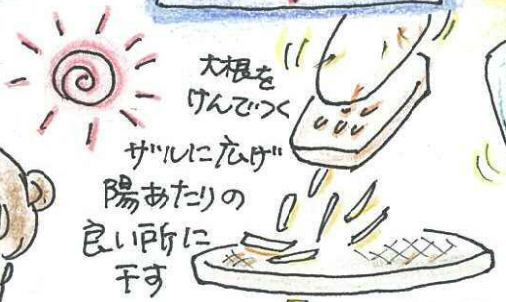 大根を
けんでつく
ザルに広げ
陽あたりの
良い所に
干す